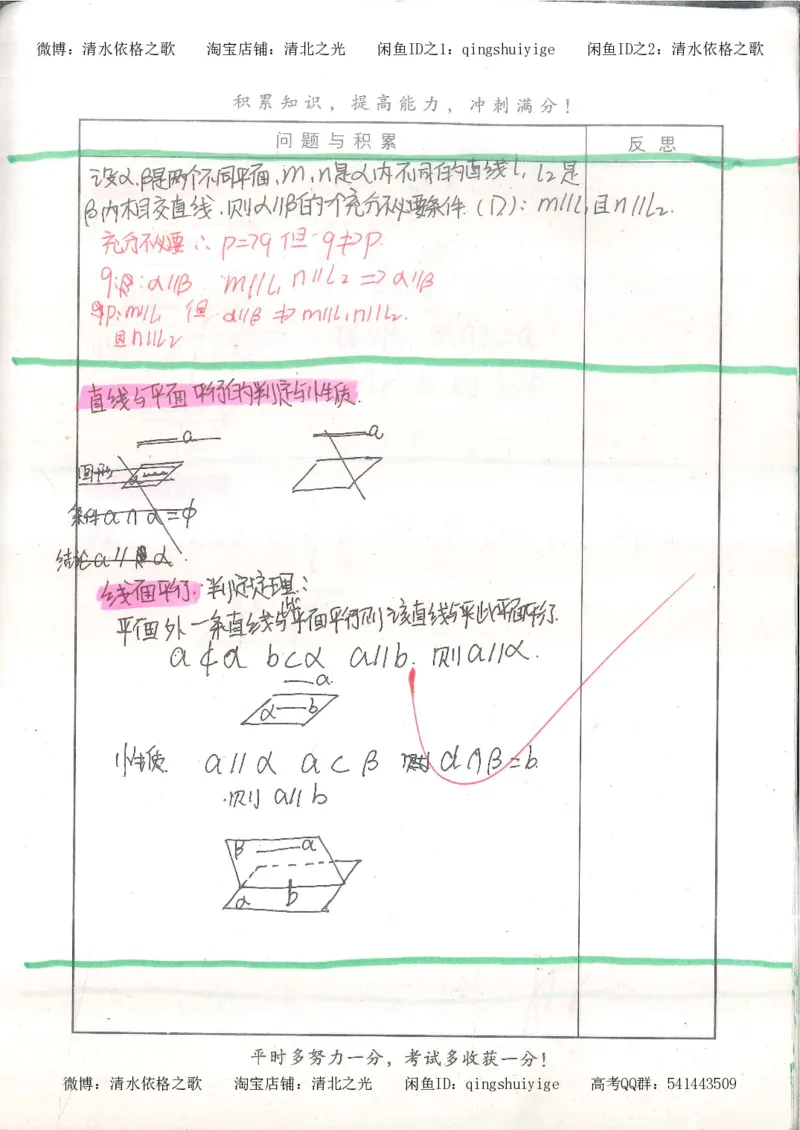 微博：清水依格之歌 淘宝店铺：清北之光 闲鱼ID之1：qingshuiyige 闲鱼ID之2：清水依格之歌
积累知识，提高能力，冲刺满分！
问题与积累 反思
设α、β是两个不同平面，m，n是α内不同的直线l₁ l₂是
β内相交直线，则α//β的一个充分不必要条件（D）：m//l₁且n//l₂.
充分不必要∴p=>q但q≠>p.
q: α//β m//l₁ n//l₂ => α//β
p: m//l₁ 但 α//β ≠> m//l₁ n//l₂.
且n//l₂
直线与平面平行的判定与性质.
a a
图形
条件 a∩α=ϕ
结论 a//α.
线面平行.判定定理：
平面外一条直线与此平面平行则该直线与此平面平行.
a⊄α b⊂α a//b. 则a//α.
a
α b
性质 a//α a⊂β α∩β=b.
则 a//b
β a
α b
平时多努力一分，考试多收获一分！
微博：清水依格之歌 淘宝店铺：清北之光 闲鱼ID：qingshuiyige 高考QQ群：541443509